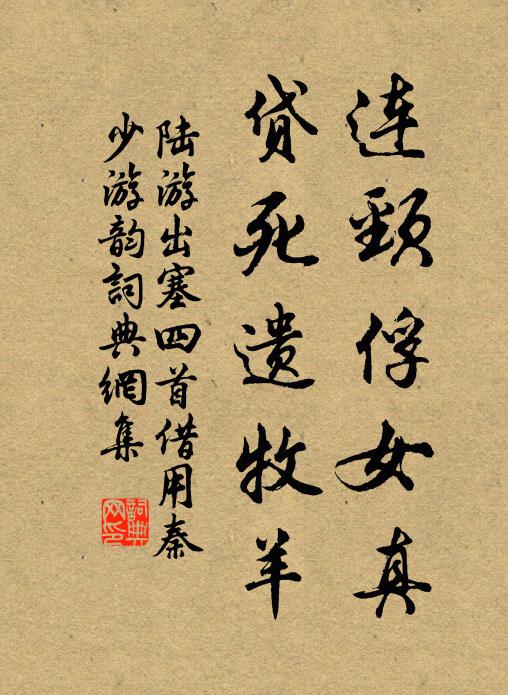 连颈俘女真
贷死遗牧羊
陆游出塞四首借用秦
少游韵詞典網集
詞典
网印